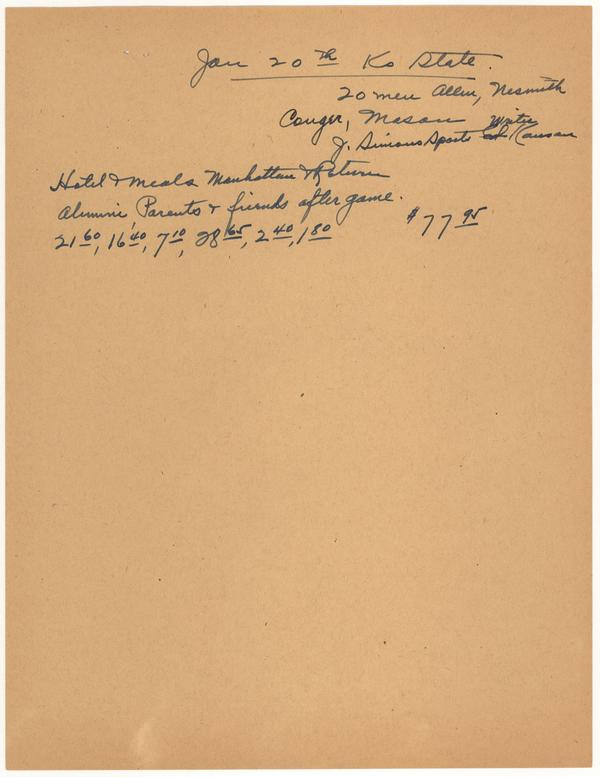 Jan 20th Ks State.
20 men Allen, Nesmith
Conger, Mason Writer
J. Simons Sports Ed. Kansan
Hotel & meals Manhattan & Return
Alumni, Parents & friends after game.
21 60, 16 40, 7 10, 28 65, 2 40, 1 80 $77 95